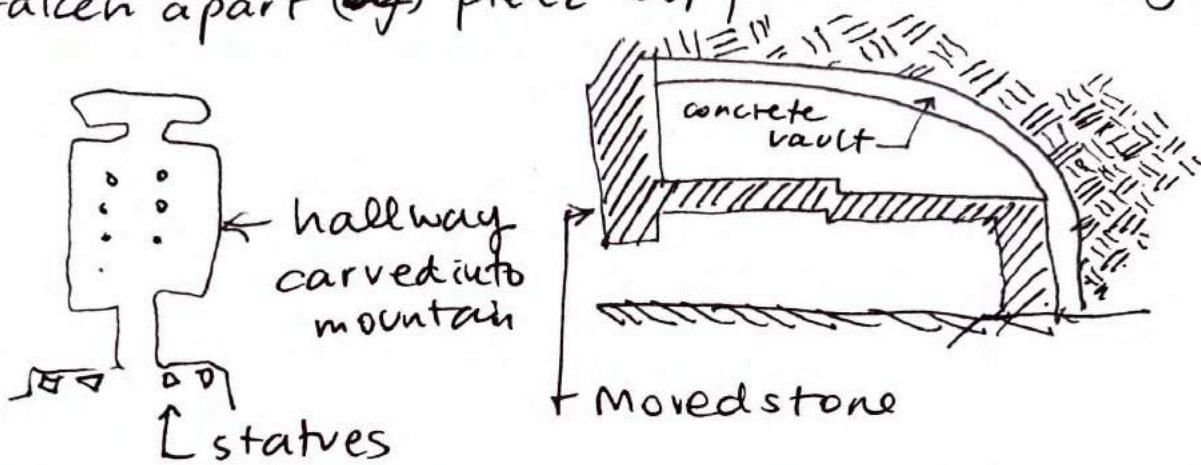 taken apart piece
concrete
vault
hallway
carved into
mountain
Moved stone
statves